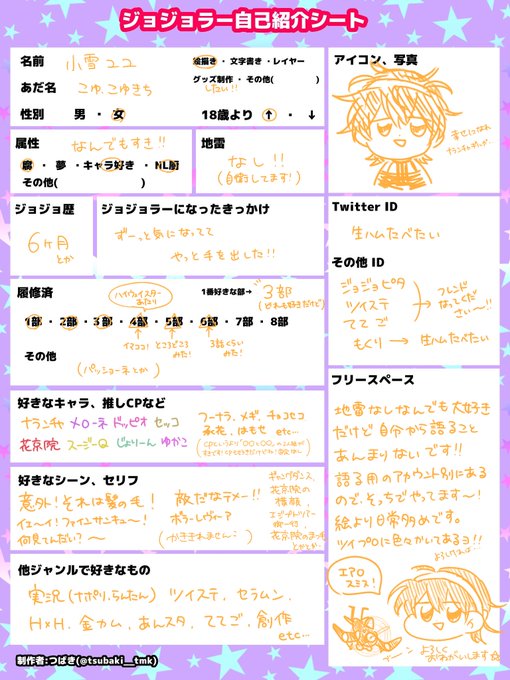 ジョジョラー自己紹介シート
名前 小雪ユユ
絵描き・文字書き・レイヤー
グッズ制作・その他( )
したい!!
あだ名 こゆ、こゆきち
性別 男・女
18歳より ↑・↓
属性 なんでもすき!!
腐・夢・キャラ好き・NL厨
その他( )
地雷
なし!!
(自衛してます!)
ジョジョ歴
6ヶ月とか
ジョジョラーになったきっかけ
ずーっと気になってて
やっと手を出した!!
履修済
ハイウェイスターあたり
1番好きな部→ 3部
(どれも好きだけど)
1部・2部・3部・4部・5部・6部・7部・8部
イマココ!
ところどころみた!
3話くらいみた!
その他
(パッショーネとか)
好きなキャラ、推しCPなど
ナランチャ メローネ ドッピオ セッコ
花京院 スージーQ じょりーん ゆかこ
フーナラ、メギ、チョコセコ
承花、はもせ etc…
好きなシーン、セリフ
意外!それは髪の毛!
イエーイ!ファインサンキュー!
何見てんだい?〜
敵だなテメー!!
ボラーレヴィーア
(かききれません:)
ギャングダンス、
花京院の
横顔、
エジプトツアー
花京院のまつ毛
とかとか…
他ジャンルで好きなもの
実況(ナポリ、らんたん) ツイステ、セラムン、
H×H、金カム、あんスタ、ててご、創作
etc…
制作者:つばき(@tsubaki__tmk)
アイコン、写真
幸せになれ
ナランチャギルガ…
Twitter ID
生ハムたべたい
その他 ID
ジョジョピタ
ツイステ
ててご
→ フレンドなってくださいー!!
もくり → 生ハムたべたい
フリースペース
地雷なしなんでも大好き
だけど自分から語ること
あんまりないです!!
語る用のアカウント別にある
ので、そっちでやってますー!
絵より日常多めです。
ツイプロに色々かいてあるヨ!!
よければ…
エアロスミス!
ブーン
よろしくおねがいします